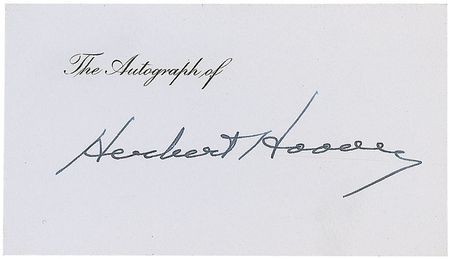 The Autograph of
Herbert Hoover